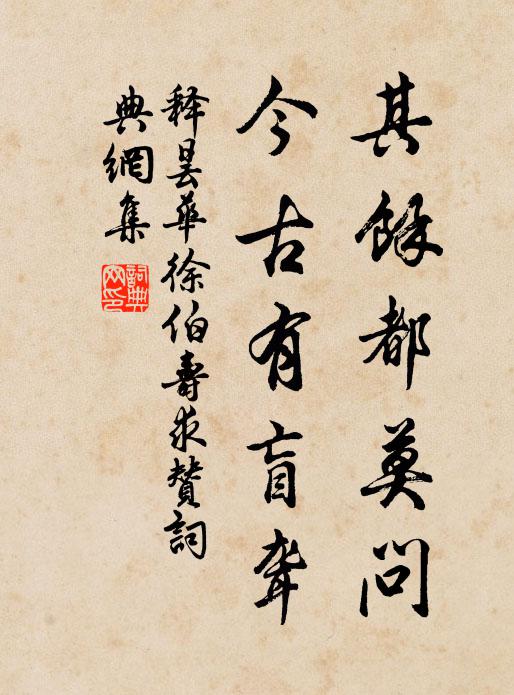 其餘都莫問
今古有盲聾
釋曇華徐伯壽求贊詞
典網集
詞典網印